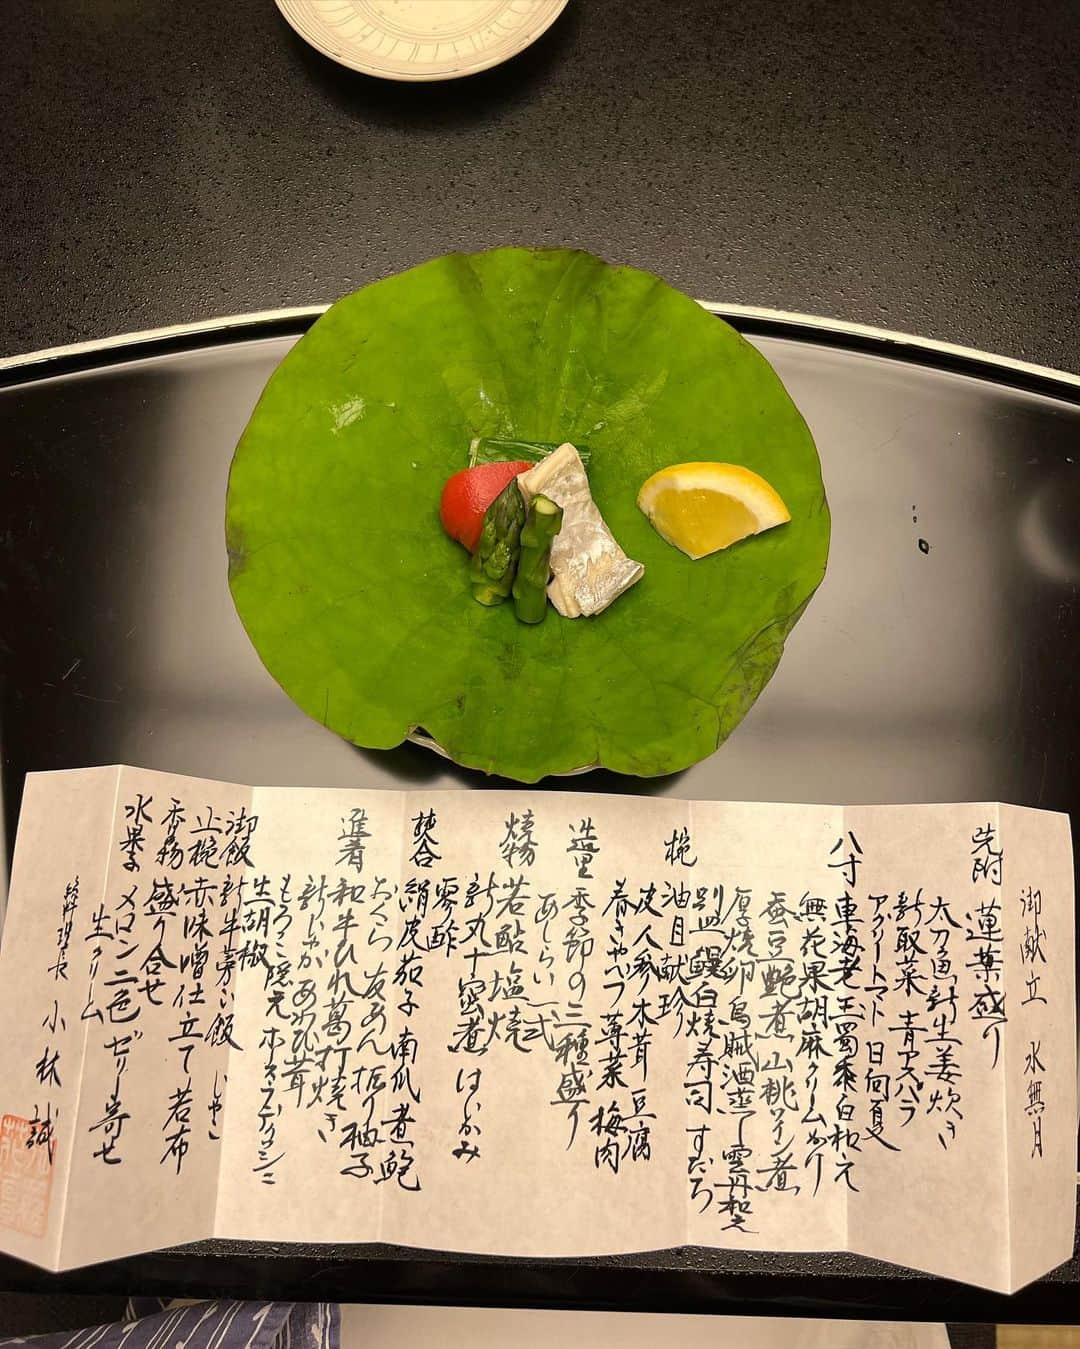 御献立 水無月
先附 蓮葉盛り
太刀魚新生姜炊き
新取菜 青アスパラ
アメリートマト 日向夏
八寸 車海老玉蜀黍白和え
無花果胡麻クリームかけ
蚕豆艶煮 山桃ワイン煮
厚焼卵 烏賊酒蒸し雲丹和え
別皿 鰻白焼寿司 すだち
椀 油目献珍
皮人参 木茸 豆腐
春きゃべつ 蓴菜 梅肉
造里 季節の三種盛り
あしらい一式
焼物 若鮎塩焼
新丸十蜜煮 はじかみ
蓼酢
焚合 絹皮茄子 南瓜 煮鮑
おくら 友あん 振り柚子
進肴 和牛ひれ葛打焼き
新じゃが あわび茸
もろこし 隠元
生胡椒
御飯 新牛蒡い飯
止椀 赤味噌仕立て 若布
香物 盛り合せ
水菓子 メロン二色ゼリー寄せ
生クリーム
料理長 小林 誠